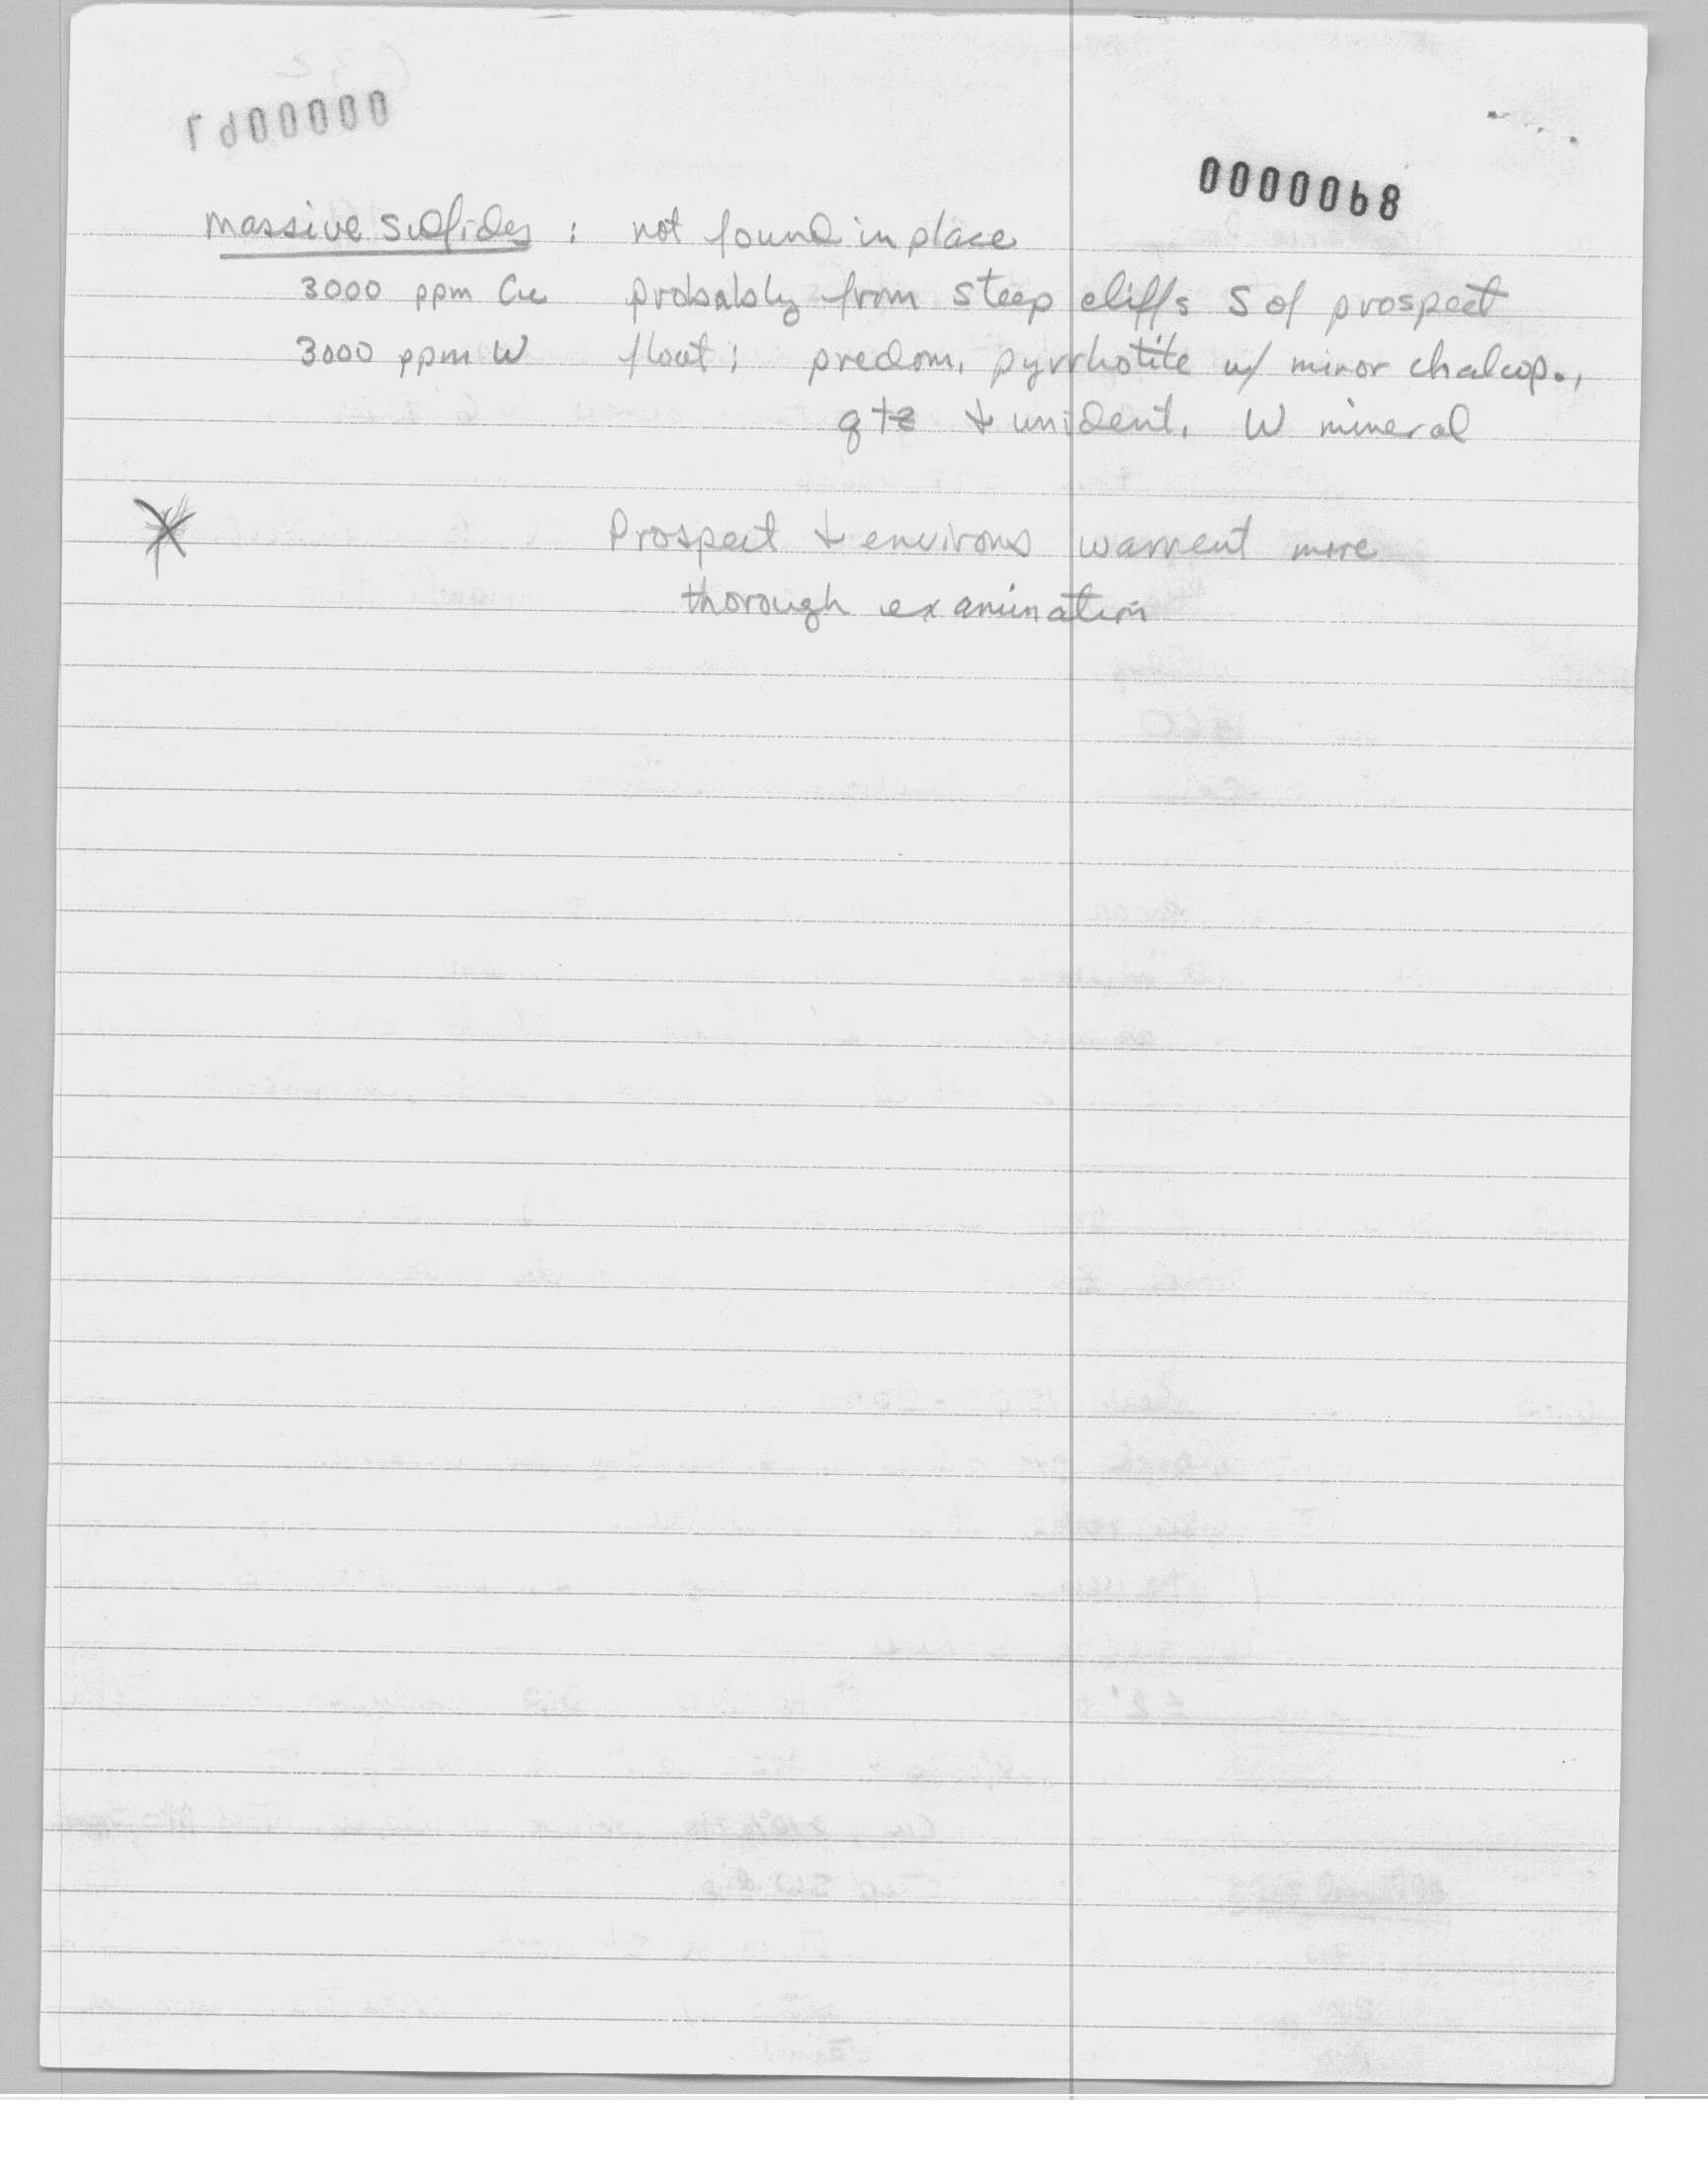 0000068
massive sulfides : not found in place
3000 ppm Cu probably from steep cliffs S of prospect
3000 ppm W float; predom. pyrrhotite w/ minor chalcop.,
qtz & unident. W mineral
Prospect & environs warrent more
thorough examination